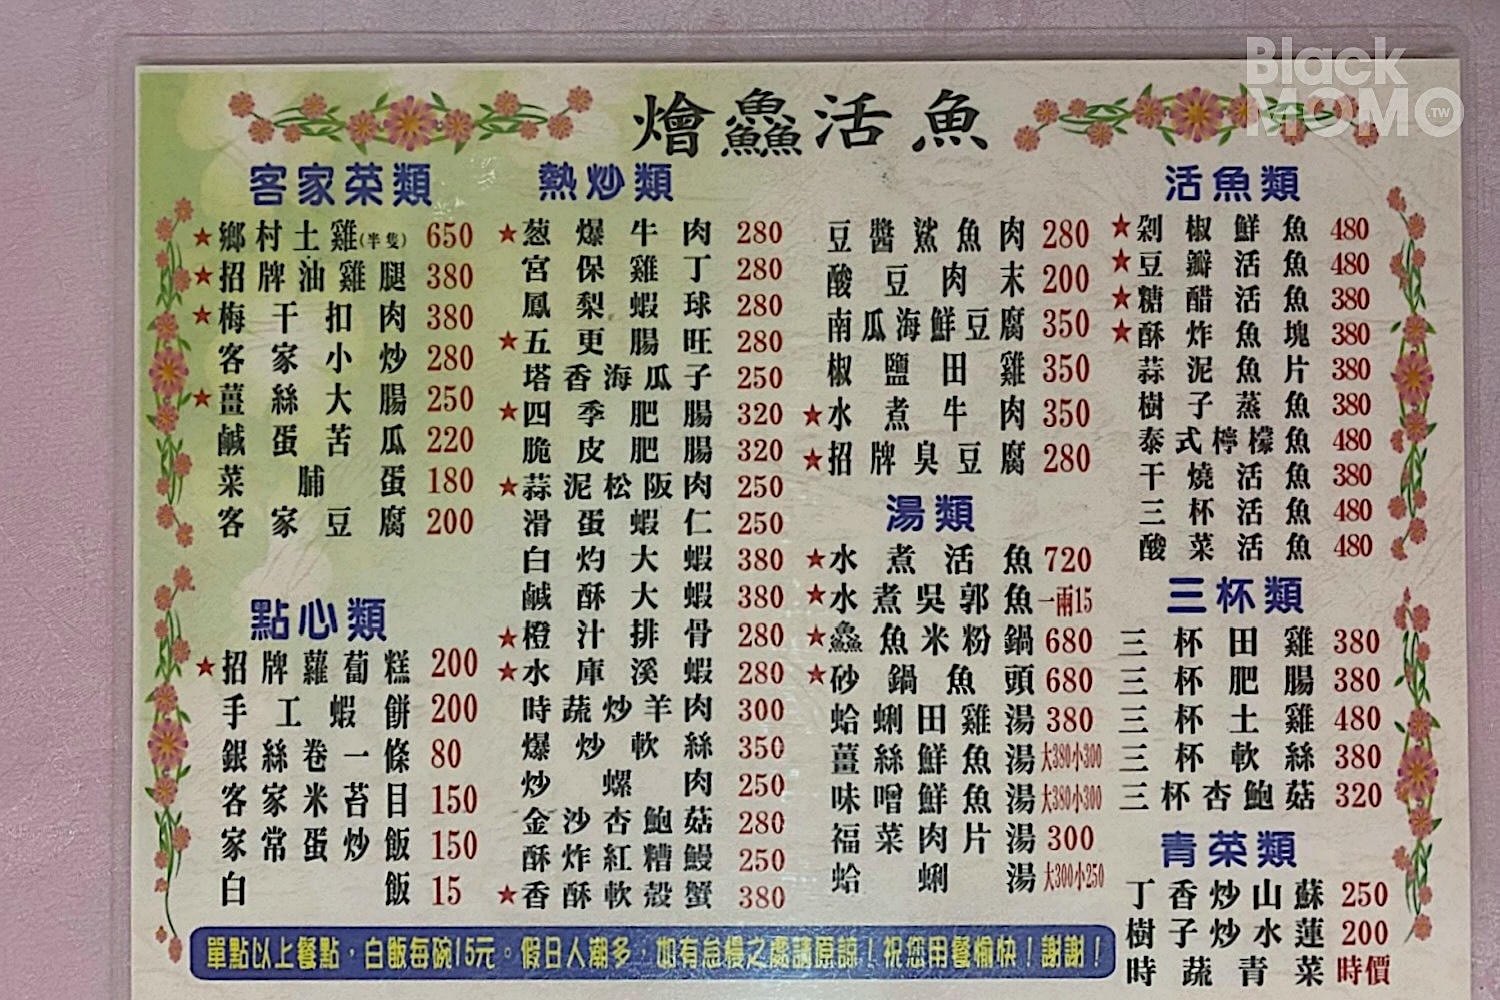 Black
MOMO
.TW
燴鱻活魚
客家菜類
★鄉村土雞(半隻) 650
★招牌油雞腿 380
★梅干扣肉 380
客家小炒 280
★薑絲大腸 250
鹹蛋苦瓜 220
菜脯蛋 180
客家豆腐 200
點心類
★招牌蘿蔔糕 200
手工蝦餅 200
銀絲卷一條 80
客家米苔目 150
家常蛋炒飯 150
白飯 15
熱炒類
★葱爆牛肉 280
宮保雞丁 280
鳳梨蝦球 280
★五更腸旺 280
塔香海瓜子 250
★四季肥腸 320
脆皮肥腸 320
★蒜泥松阪肉 250
滑蛋蝦仁 250
白灼大蝦 380
鹹酥大蝦 380
★橙汁排骨 280
★水庫溪蝦 280
時蔬炒羊肉 300
爆炒軟絲 350
炒螺肉 250
金沙杏鮑菇 280
酥炸紅糟鰻 250
★香酥軟殼蟹 380
豆醬鯊魚肉 280
酸豆肉末 200
南瓜海鮮豆腐 350
椒鹽田雞 350
★水煮牛肉 350
★招牌臭豆腐 280
湯類
★水煮活魚 720
★水煮吳郭魚 一兩15
★鱻魚米粉鍋 680
★砂鍋魚頭 680
蛤蜊田雞湯 380
薑絲鮮魚湯 大380小300
味噌鮮魚湯 大380小300
福菜肉片湯 300
蛤蜊湯 大300小250
活魚類
★剁椒鮮魚 480
★豆瓣活魚 480
★糖醋活魚 380
★酥炸魚塊 380
蒜泥魚片 380
樹子蒸魚 380
泰式檸檬魚 480
干燒活魚 380
三杯活魚 480
酸菜活魚 480
三杯類
三杯田雞 380
三杯肥腸 380
三杯土雞 480
三杯軟絲 380
三杯杏鮑菇 320
青菜類
丁香炒山蘇 250
樹子炒水蓮 200
時蔬青菜 時價
單點以上餐點，白飯每碗15元。假日人潮多，如有怠慢之處請原諒！祝您用餐愉快！謝謝！